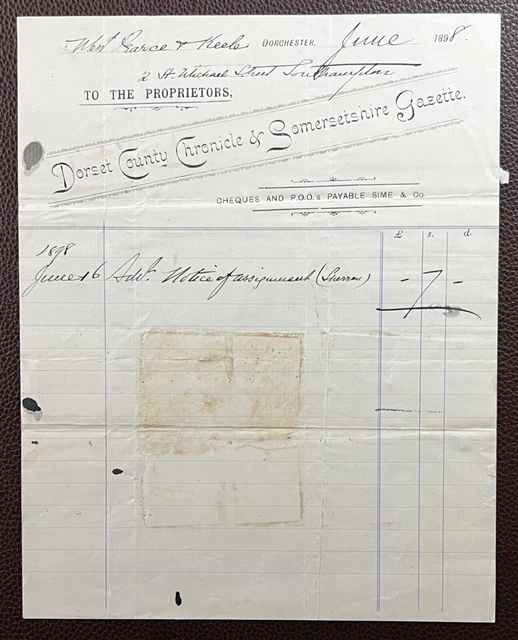 Pearce & Keele DORCHESTER, June 1898.
2 St. Michael Street Southampton
TO THE PROPRIETORS,
Dorset County Chronicle & Somersetshire Gazette.
CHEQUES AND P.O.O.s PAYABLE SIME & Co
£ s. d.
1898
June 16 Advt. Notice of assignment (Sherron) - 7 -